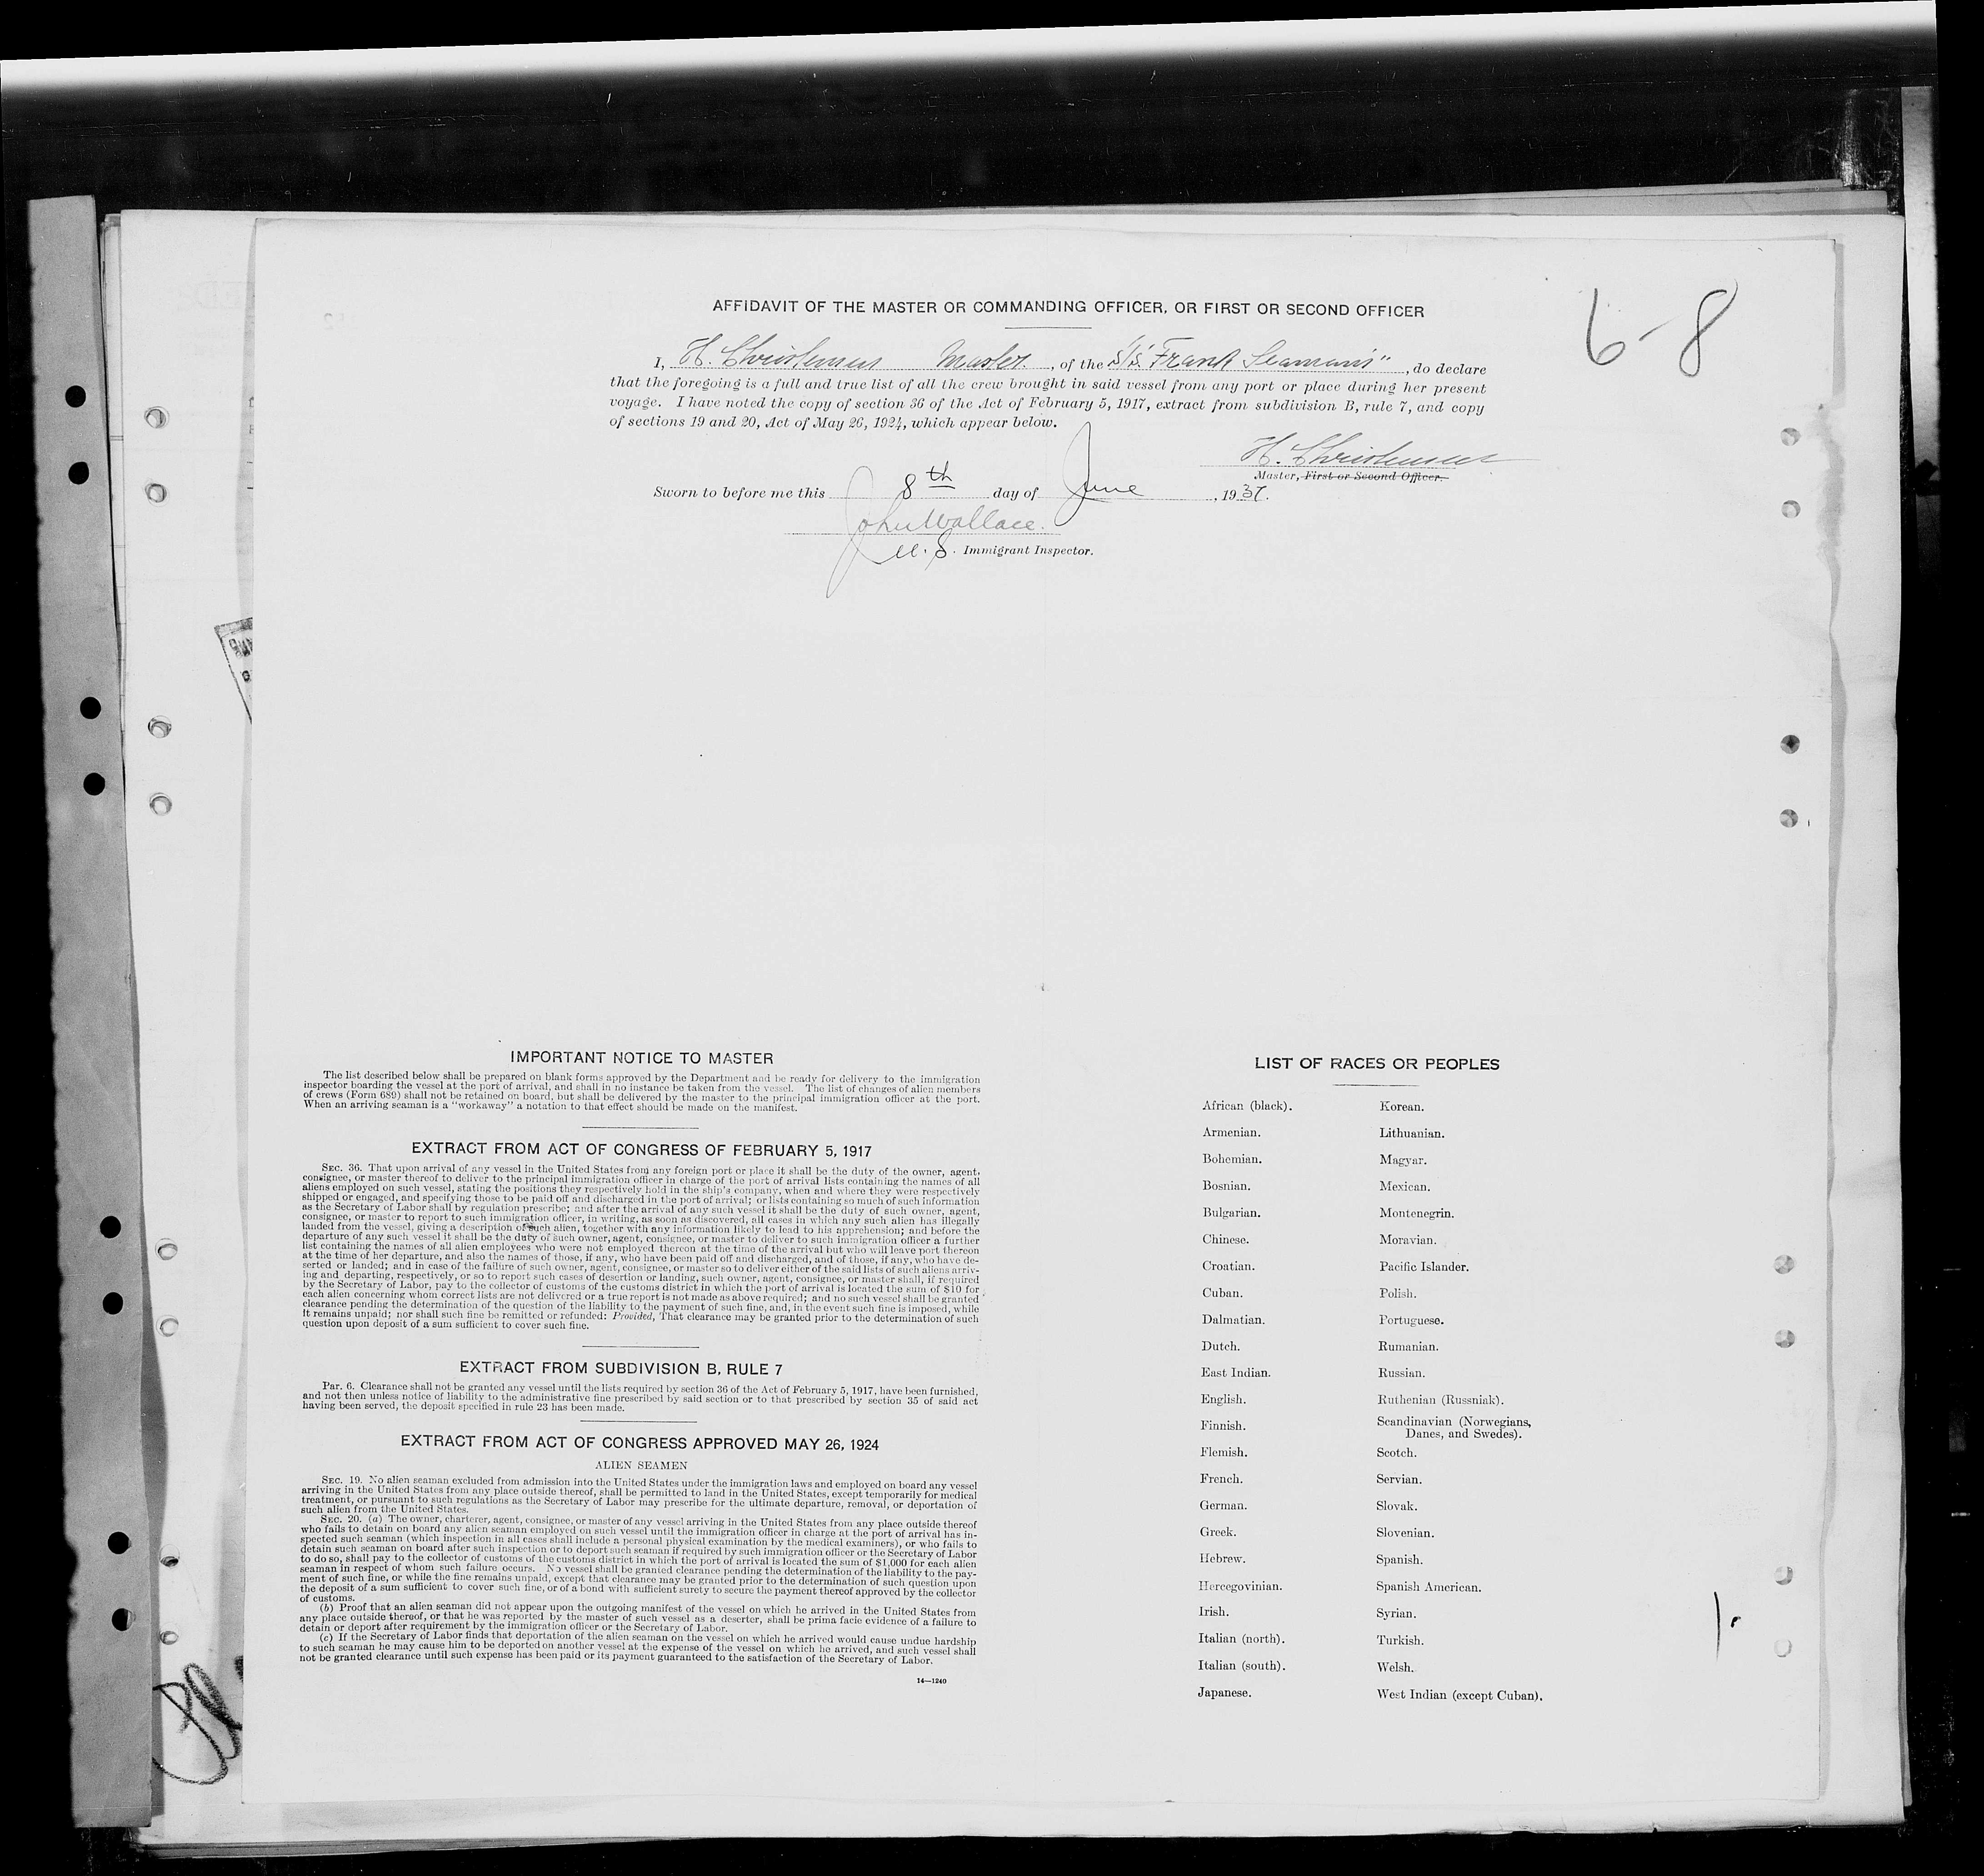 6-8
AFFIDAVIT OF THE MASTER OR COMMANDING OFFICER, OR FIRST OR SECOND OFFICER
I, H. Christensen Master, of the S/S. "Frank Seamans", do declare
that the foregoing is a full and true list of all the crew brought in said vessel from any port or place during her present
voyage. I have noted the copy of section 36 of the Act of February 5, 1917, extract from subdivision B, rule 7, and copy
of sections 19 and 20, Act of May 26, 1924, which appear below.
H. Christensen
Master, First or Second Officer.
Sworn to before me this 8th day of June, 1937.
John Wallace.
U.S. Immigrant Inspector.
IMPORTANT NOTICE TO MASTER
The list described below shall be prepared on blank forms approved by the Department and be ready for delivery to the immigration
inspector boarding the vessel at the port of arrival, and shall in no instance be taken from the vessel. The list of changes of alien members
of crews (Form 689) shall not be retained on board, but shall be delivered by the master to the principal immigration officer at the port.
When an arriving seaman is a "workaway" a notation to that effect should be made on the manifest.
EXTRACT FROM ACT OF CONGRESS OF FEBRUARY 5, 1917
SEC. 36. That upon arrival of any vessel in the United States from any foreign port or place it shall be the duty of the owner, agent,
consignee, or master thereof to deliver to the principal immigration officer in charge of the port of arrival lists containing the names of all
aliens employed on such vessel, stating the positions they respectively hold in the ship's company, when and where they were respectively
shipped or engaged, and specifying those to be paid off and discharged in the port of arrival; or lists containing so much of such information
as the Secretary of Labor shall by regulation prescribe; and after the arrival of any such vessel it shall be the duty of such owner, agent,
consignee, or master to report to such immigration officer, in writing, as soon as discovered, all cases in which any such alien has illegally
landed from the vessel, giving a description of such alien, together with any information likely to lead to his apprehension; and before the
departure of any such vessel it shall be the duty of such owner, agent, consignee, or master to deliver to such immigration officer a further
list containing the names of all alien employees who were not employed thereon at the time of the arrival but who will leave port thereon
at the time of her departure, and also the names of those, if any, who have been paid off and discharged, and of those, if any, who have de-
serted or landed; and in case of the failure of such owner, agent, consignee, or master so to deliver either of the said lists of such aliens arriv-
ing and departing, respectively, or so to report such cases of desertion or landing, such owner, agent, consignee, or master shall, if required
by the Secretary of Labor, pay to the collector of customs of the customs district in which the port of arrival is located the sum of $10 for
each alien concerning whom correct lists are not delivered or a true report is not made as above required; and no such vessel shall be granted
clearance pending the determination of the question of the liability to the payment of such fine, and, in the event such fine is imposed, while
it remains unpaid; nor shall such fine be remitted or refunded: Provided, That clearance may be granted prior to the determination of such
question upon deposit of a sum sufficient to cover such fine.
EXTRACT FROM SUBDIVISION B, RULE 7
PAR. 6. Clearance shall not be granted any vessel until the lists required by section 36 of the Act of February 5, 1917, have been furnished,
and not then unless notice of liability to the administrative fine prescribed by said section or to that prescribed by section 35 of said act
having been served, the deposit specified in rule 23 has been made.
EXTRACT FROM ACT OF CONGRESS APPROVED MAY 26, 1924
ALIEN SEAMEN
SEC. 19. No alien seaman excluded from admission into the United States under the immigration laws and employed on board any vessel
arriving in the United States from any place outside thereof, shall be permitted to land in the United States, except temporarily for medical
treatment, or pursuant to such regulations as the Secretary of Labor may prescribe for the ultimate departure, removal, or deportation of
such alien from the United States.
SEC. 20. (a) The owner, charterer, agent, consignee, or master of any vessel arriving in the United States from any place outside thereof
who fails to detain on board any alien seaman employed on such vessel until the immigration officer in charge at the port of arrival has in-
spected such seaman (which inspection in all cases shall include a personal physical examination by the medical examiners), or who fails to
detain such seaman on board after such inspection or to deport such seaman if required by such immigration officer or the Secretary of Labor
to do so, shall pay to the collector of customs of the customs district in which the port of arrival is located the sum of $1,000 for each alien
seaman in respect of whom such failure occurs. No vessel shall be granted clearance pending the determination of the liability to the pay-
ment of such fine, or while the fine remains unpaid, except that clearance may be granted prior to the determination of such question upon
the deposit of a sum sufficient to cover such fine, or of a bond with sufficient surety to secure the payment thereof approved by the collector
of customs.
(b) Proof that an alien seaman did not appear upon the outgoing manifest of the vessel on which he arrived in the United States from
any place outside thereof, or that he was reported by the master of such vessel as a deserter, shall be prima facie evidence of a failure to
detain or deport after requirement by the immigration officer or the Secretary of Labor.
(c) If the Secretary of Labor finds that deportation of the alien seaman on the vessel on which he arrived would cause undue hardship
to such seaman he may cause him to be deported on another vessel at the expense of the vessel on which he arrived, and such vessel shall
not be granted clearance until such expense has been paid or its payment guaranteed to the satisfaction of the Secretary of Labor.
14—1240
LIST OF RACES OR PEOPLES
African (black).
Armenian.
Bohemian.
Bosnian.
Bulgarian.
Chinese.
Croatian.
Cuban.
Dalmatian.
Dutch.
East Indian.
English.
Finnish.
Flemish.
French.
German.
Greek.
Hebrew.
Hercegovinian.
Irish.
Italian (north).
Italian (south).
Japanese.
Korean.
Lithuanian.
Magyar.
Mexican.
Montenegrin.
Moravian.
Pacific Islander.
Polish.
Portuguese.
Rumanian.
Russian.
Ruthenian (Russniak).
Scandinavian (Norwegians,
Danes, and Swedes).
Scotch.
Servian.
Slovak.
Slovenian.
Spanish.
Spanish American.
Syrian.
Turkish.
Welsh.
West Indian (except Cuban).